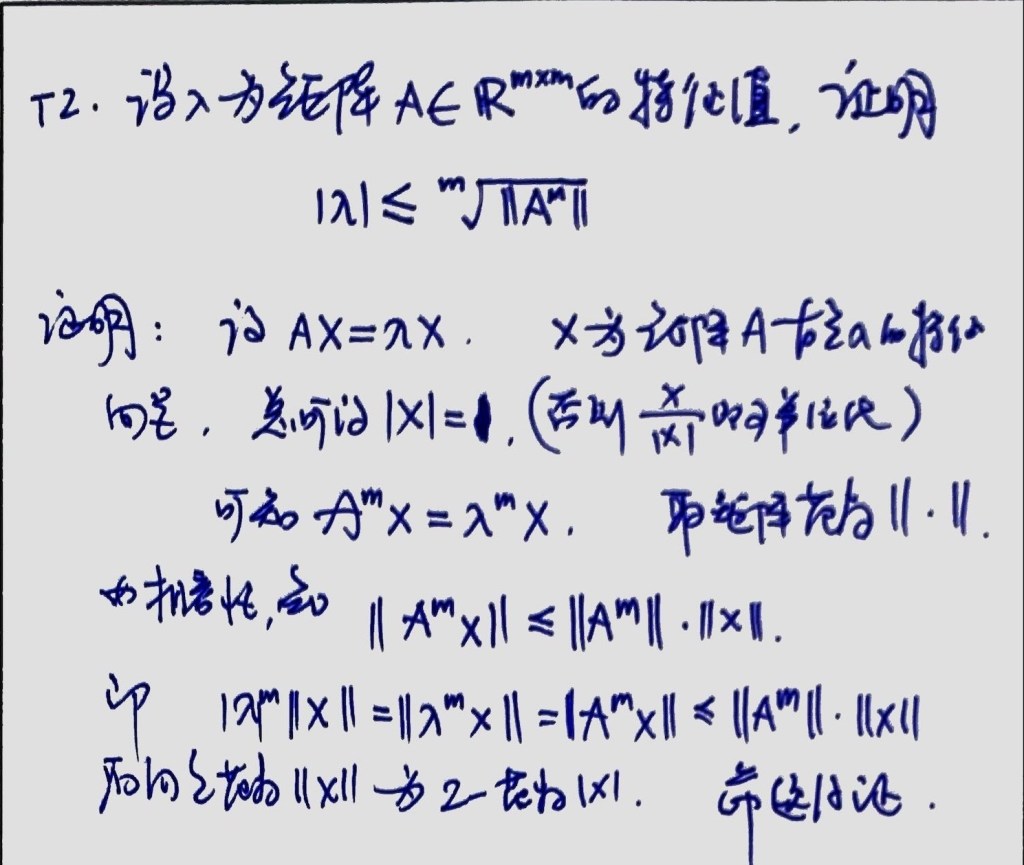 T2. 设λ为矩阵 A∈ℝ^{m×m} 的特征值, 证明
|λ| ≤ \sqrt[m]{‖A^m‖}
证明: 设 AX=λX. X为矩阵A 的特征
向量. 总可设 |X|=1. (否则 \frac{X}{|X|} 单位化)
可知 A^m X = λ^m X. 取矩阵范数 ‖·‖.
由相容性, 知 ‖A^m X‖ ≤ ‖A^m‖·‖X‖.
即 |λ|^m ‖X‖ = ‖λ^m X‖ = ‖A^m X‖ ≤ ‖A^m‖·‖X‖
向量范数 ‖X‖ 为 2-范数 |X|. 命题得证.